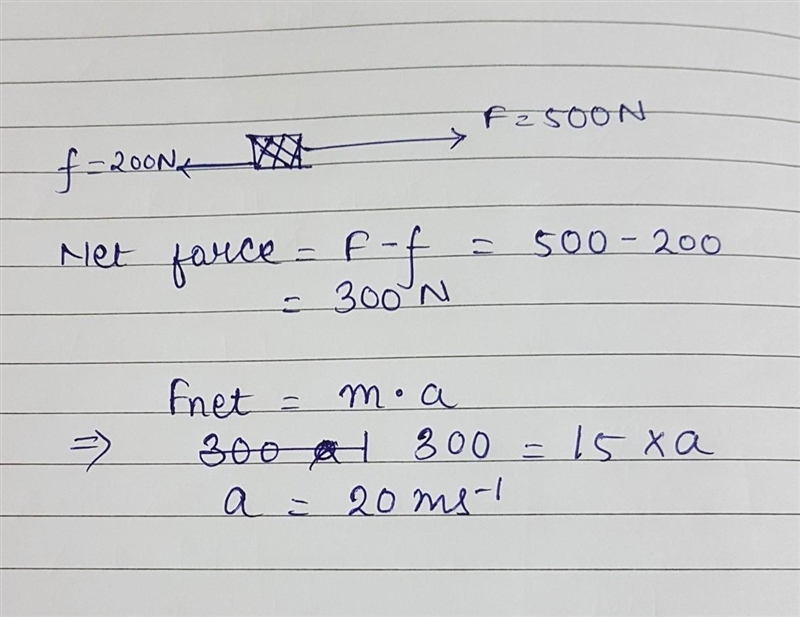 F = 500N
f = 200N
Net force = F - f = 500 - 200
= 300 N
Fnet = m · a
⇒ 300 = 15 × a
a = 20 ms⁻¹